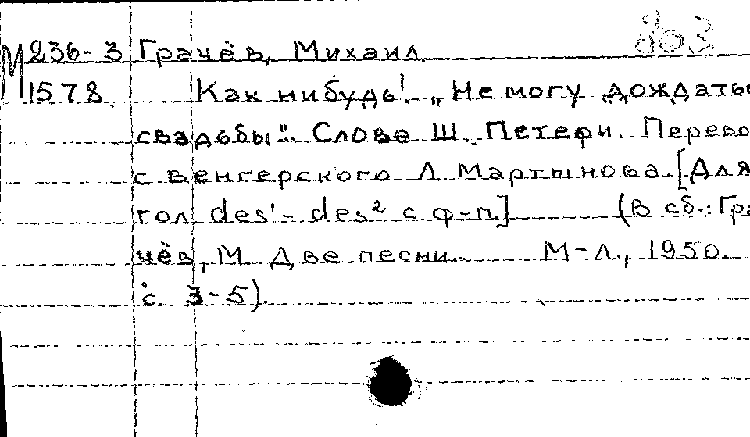 М 236-3 Грачёв, Михаил
1578 Как нибудь! „Не могу дождаты
свадьбы". Слова Ш. Петефи. Перево
с венгерского Л. Мартынова. [Для
гол des¹ - des² с ф-п.] (В сб.: Гра
чёв, М. Две песни. М-Л., 1950.
с. 3-5)